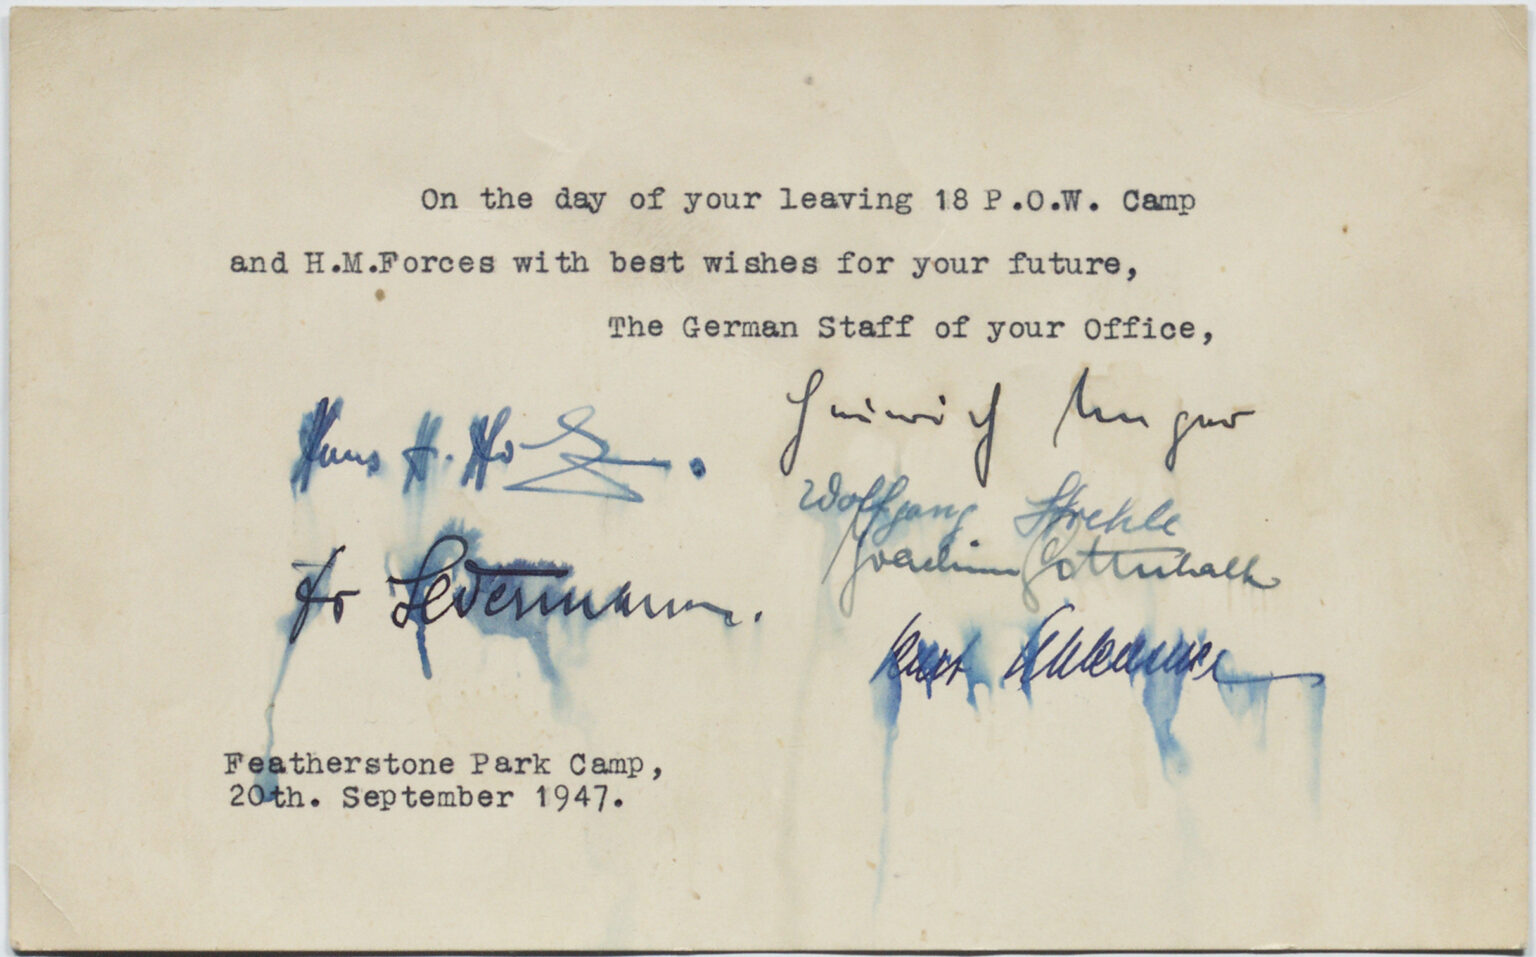 On the day of your leaving 18 P.O.W. Camp
and H.M.Forces with best wishes for your future,
The German Staff of your Office,
Heinrich Unger
Hans H.
Wolfgang Stoehle
Joachim Gottschalk
Dr Ledermann.
Kurt
Featherstone Park Camp,
20th. September 1947.